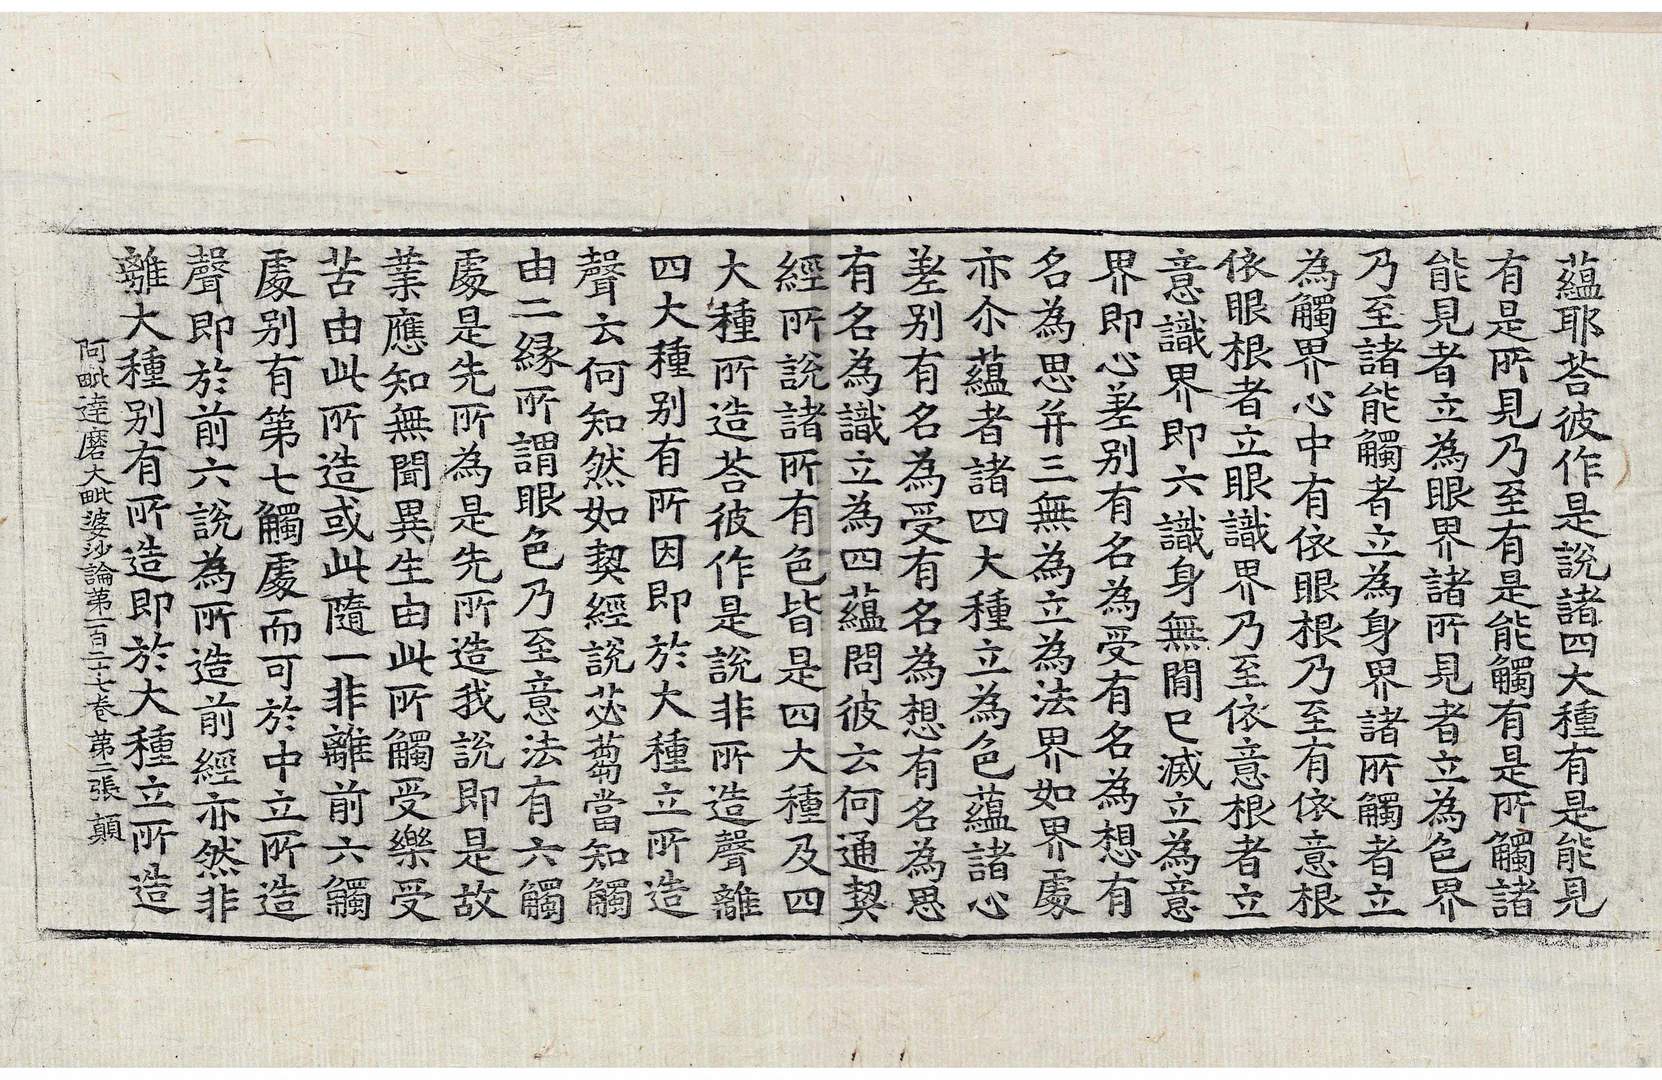 蘊耶荅彼作是說諸四大種有是能見
有是所見乃至有是能觸有是所觸諸
能見者立為眼界諸所見者立為色界
乃至諸能觸者立為身界諸所觸者立
為觸界心中有依眼根乃至有依意根
依眼根者立眼識界乃至依意根者立
意識界即六識身無間已滅立為意
界即心差别有名為受有名為想有
名為思并三無為立為法界如界處
亦尒蘊者諸四大種立為色蘊諸心
差别有名為受有名為想有名為思
有名為識立為四蘊問彼云何通契
經所說諸所有色皆是四大種及四
大種所造荅彼作是說非所造聲離
四大種别有所因即於大種立所造
聲云何知然如契經說苾蒭當知觸
由二縁所謂眼色乃至意法有六觸
處是先所為是先所造我說即是故
業應知無聞異生由此所觸受樂受
苦由此所造或此隨一非離前六觸
處别有第七觸處而可於中立所造
聲即於前六說為所造前經亦然非
離大種别有所造即於大種立所造
阿毗達磨大毗婆沙論第一百二十七卷 第二張 顛